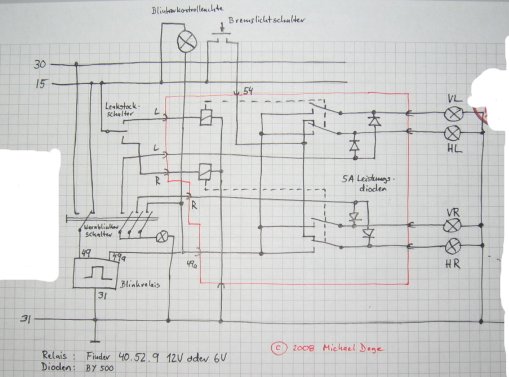 Blinkerkontrolleuchte
Bremslichtschalter
30
15
54
Lenkstock-
schalter
L
R
L
R
VL
HL
5A Leistungs-
dioden
VR
HR
Warnblinker
schalter
49
49a
49a
Blinkrelais
31
31
© 2008 Michael Dege
Relais: Finder 40.52.9 12V oder 6V
Dioden: BY 500